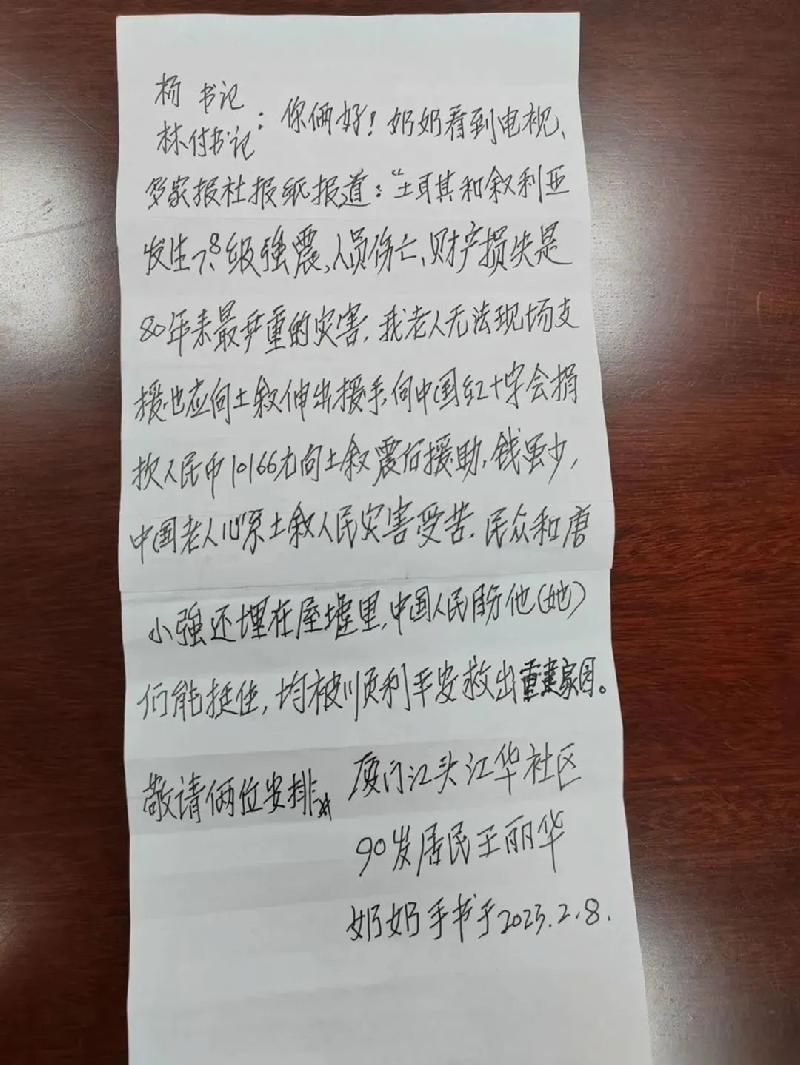 杨 书记
林付书记：你俩好！奶奶看到电视、
多家报社报纸报道："土耳其和叙利亚
发生7.8级强震，人员伤亡、财产损失是
80年来最严重的灾害，我老人无法现场支
援也应向土叙伸出援手，向中国红十字会捐
款人民币10166元向土叙震区援助，钱虽少，
中国老人心系土叙人民灾害受苦，民众和唐
小强还埋在屋墟里，中国人民盼他（她）
们能挺住，均被顺利平安救出重建家园。
敬请俩位安排。
厦门江头江华社区
90岁居民王丽华
奶奶手书于2023.2.8.